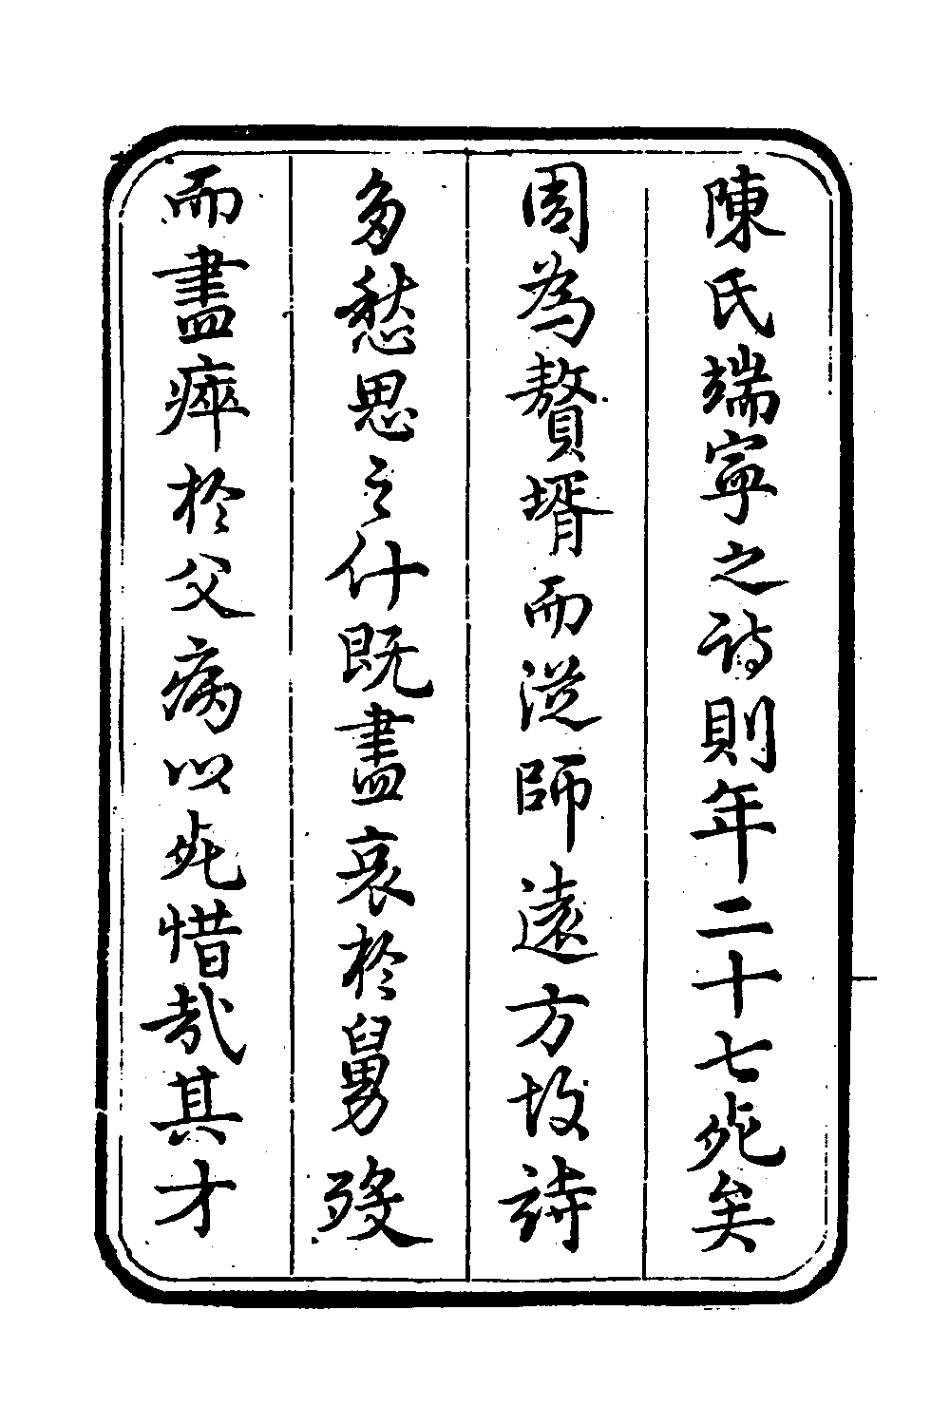 陳氏端寧之詩則年二十七死矣
周為贅壻而從師遠方故詩
多愁思之什既盡哀於舅歿
而盡瘁於父病以死惜哉其才